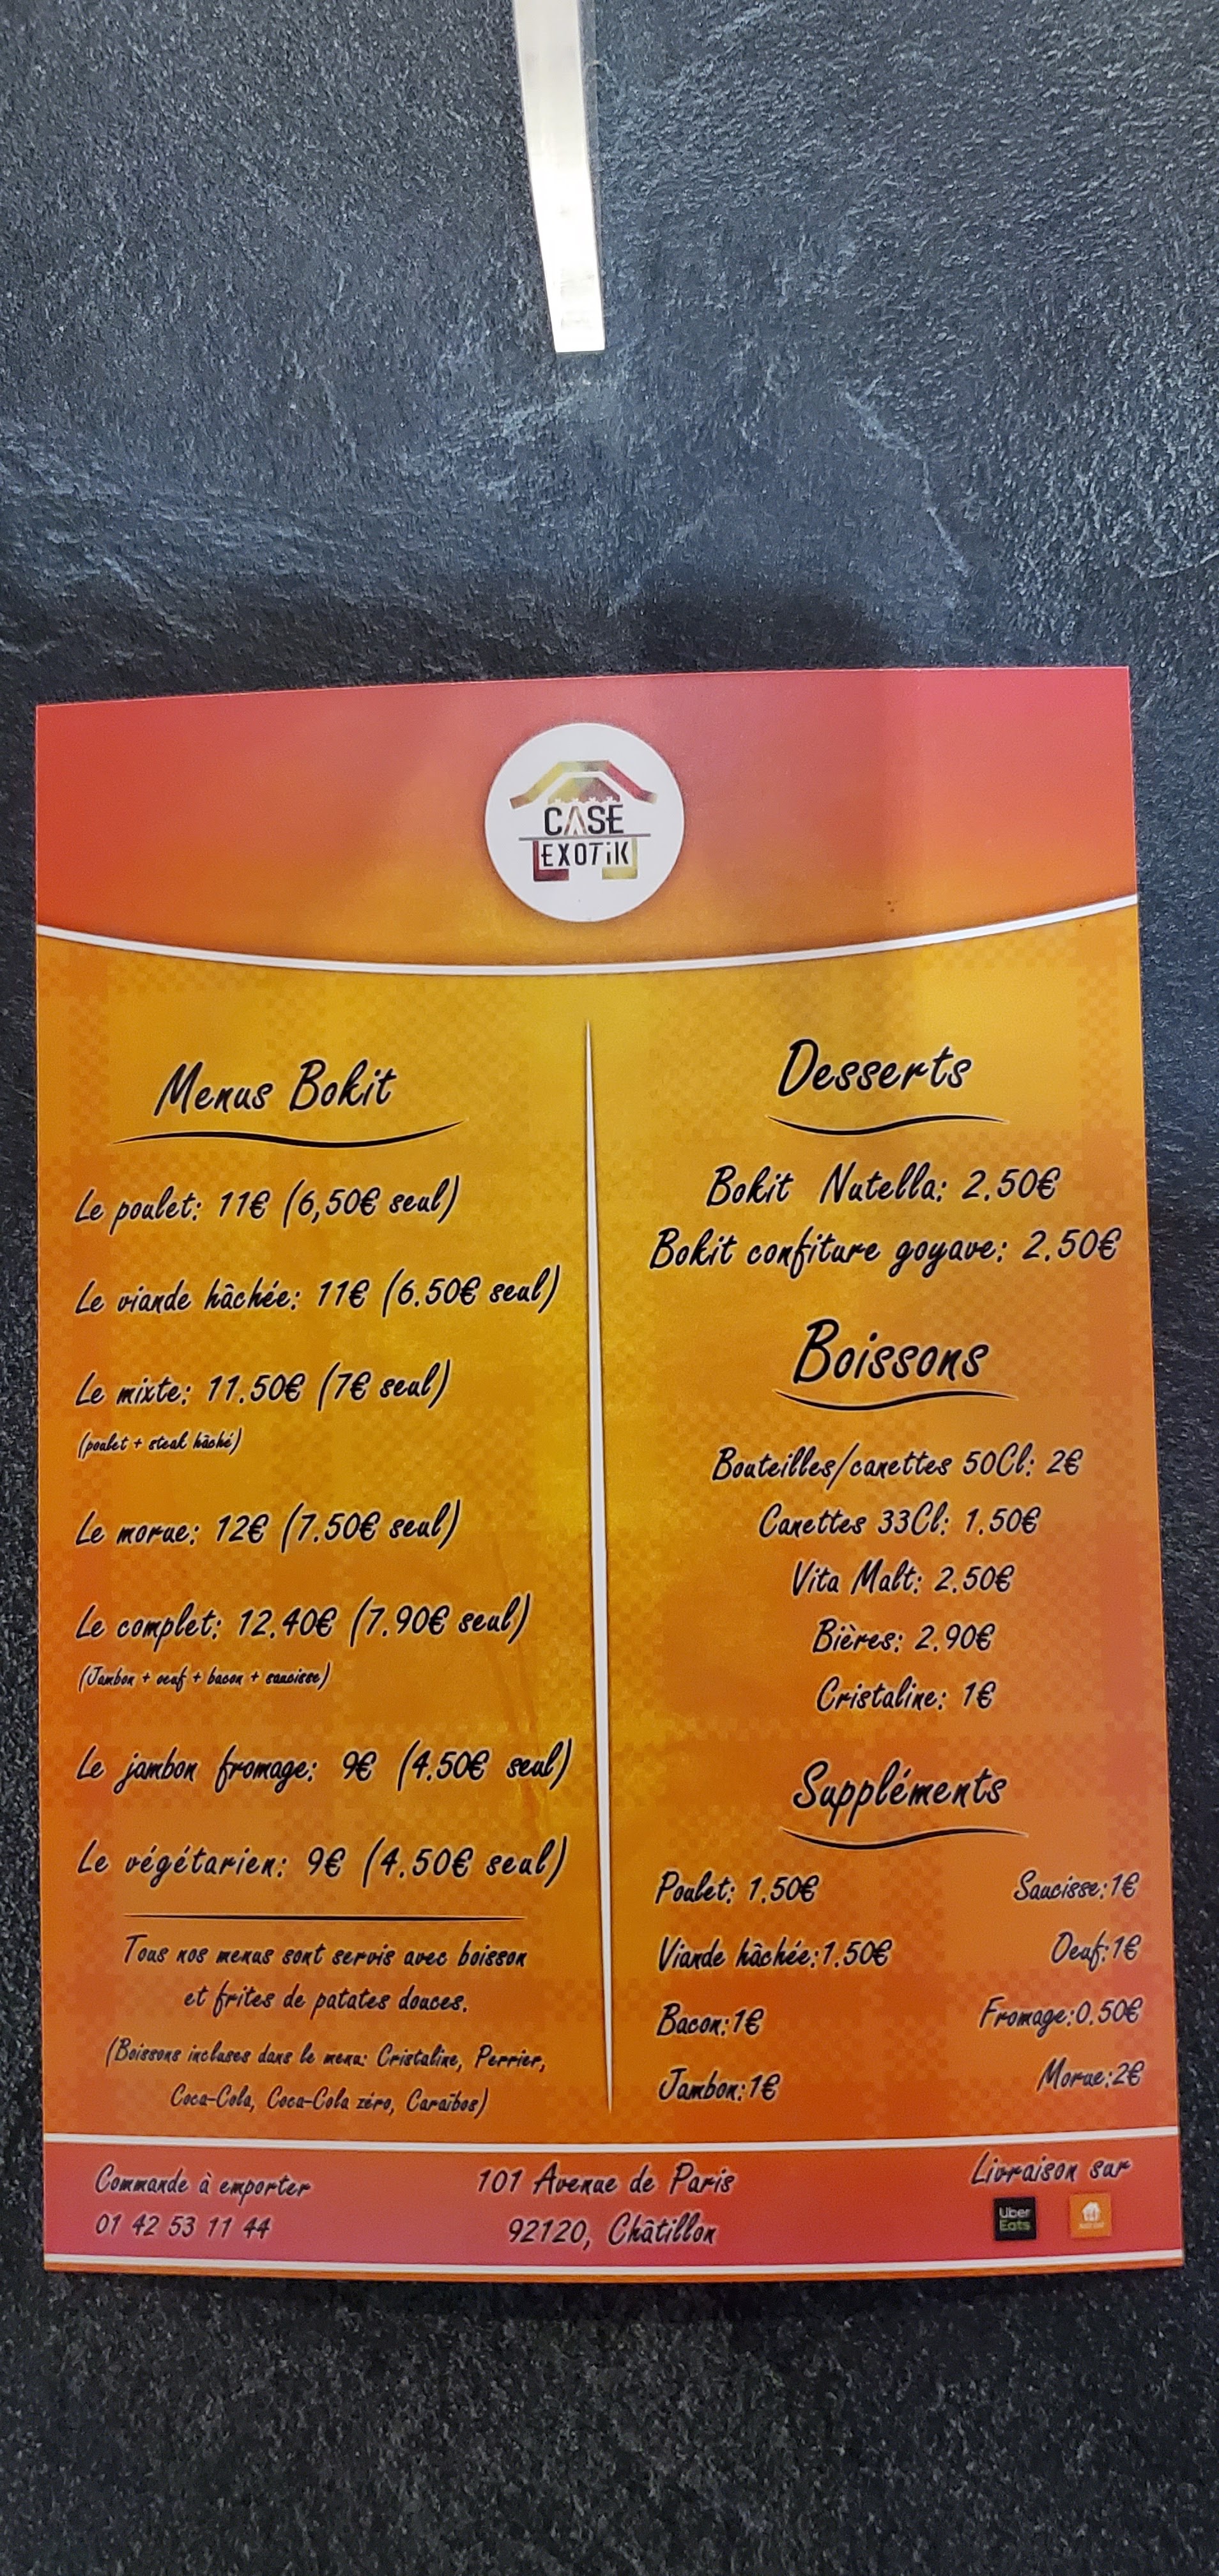 CASE
EXOTiK
Menus Bokit
Le poulet: 11€ (6,50€ seul)
Le viande hâchée: 11€ (6.50€ seul)
Le mixte: 11.50€ (7€ seul)
(poulet + steak hâché)
Le morue: 12€ (7.50€ seul)
Le complet: 12.40€ (7.90€ seul)
(Jambon + oeuf + bacon + saucisse)
Le jambon fromage: 9€ (4.50€ seul)
Le végétarien: 9€ (4.50€ seul)
Tous nos menus sont servis avec boisson
et frites de patates douces.
(Boissons incluses dans le menu: Cristaline, Perrier,
Coca-Cola, Coca-Cola zéro, Caraïbos)
Desserts
Bokit Nutella: 2.50€
Bokit confiture goyave: 2.50€
Boissons
Bouteilles/canettes 50Cl: 2€
Canettes 33Cl: 1.50€
Vita Malt: 2.50€
Bières: 2.90€
Cristaline: 1€
Suppléments
Poulet: 1.50€
Viande hâchée:1.50€
Bacon:1€
Jambon:1€
Saucisse:1€
Oeuf:1€
Fromage:0.50€
Morue:2€
Commande à emporter
01 42 53 11 44
101 Avenue de Paris
92120, Châtillon
Livraison sur
Uber
Eats